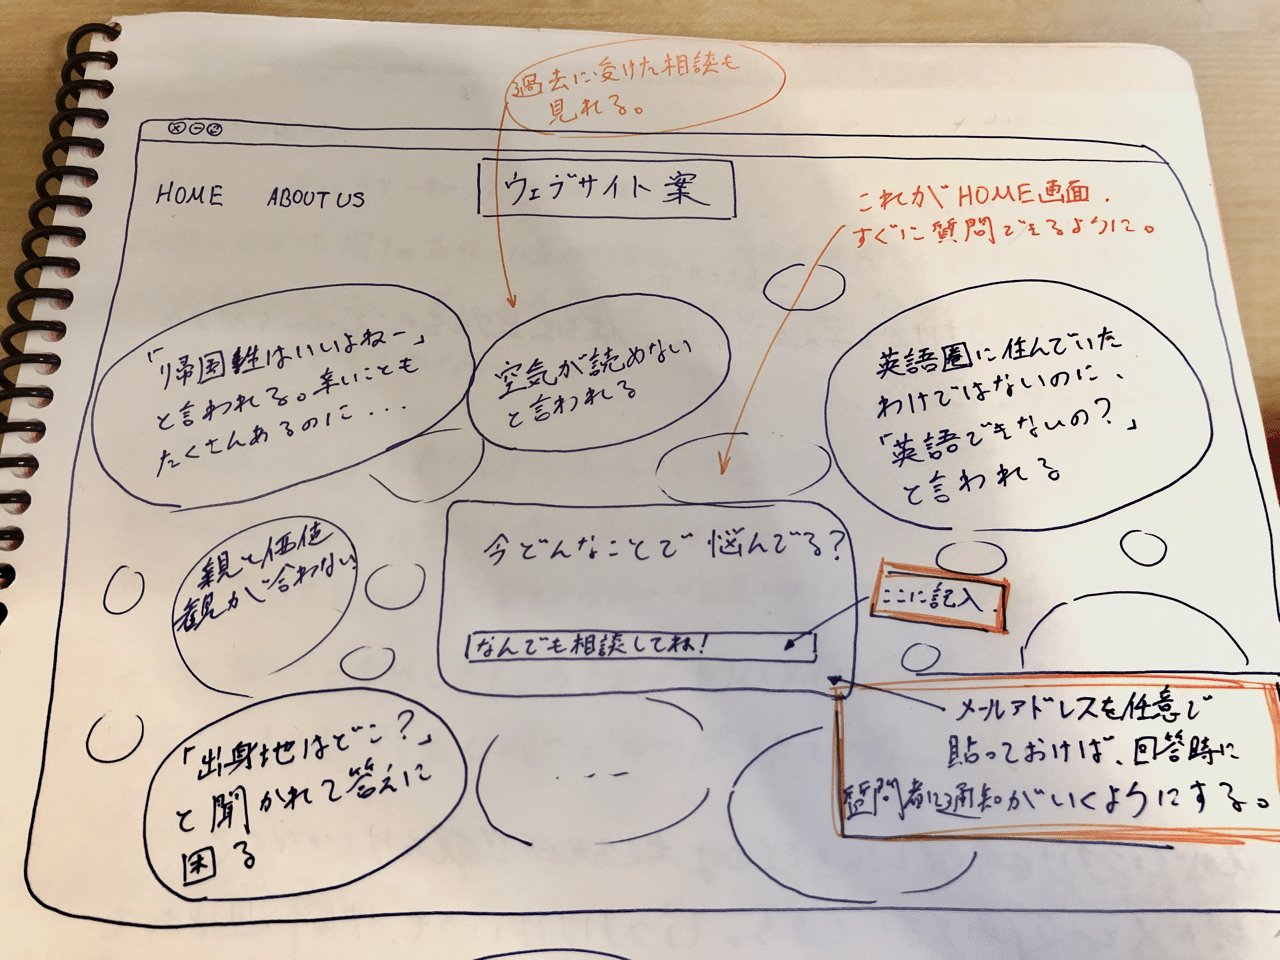 過去に受けた相談も
見れる。
HOME ABOUT US
ウェブサイト案
これがHOME画面.
すぐに質問できるように。
「帰国生はいいよねー」
と言われる。辛いことも
たくさんあるのに...
空気が読めない
と言われる
英語圏に住んでいた
わけではないのに、
「英語できないの?」
と言われる
親と価値
観が合わない
今どんなことで悩んでる?
なんでも相談してね!
ここに記入.
「出身地はどこ?」
と聞かれて答えに
困る
---
メールアドレスを任意で
貼っておけば、回答時に
質問者に通知がいくようにする。